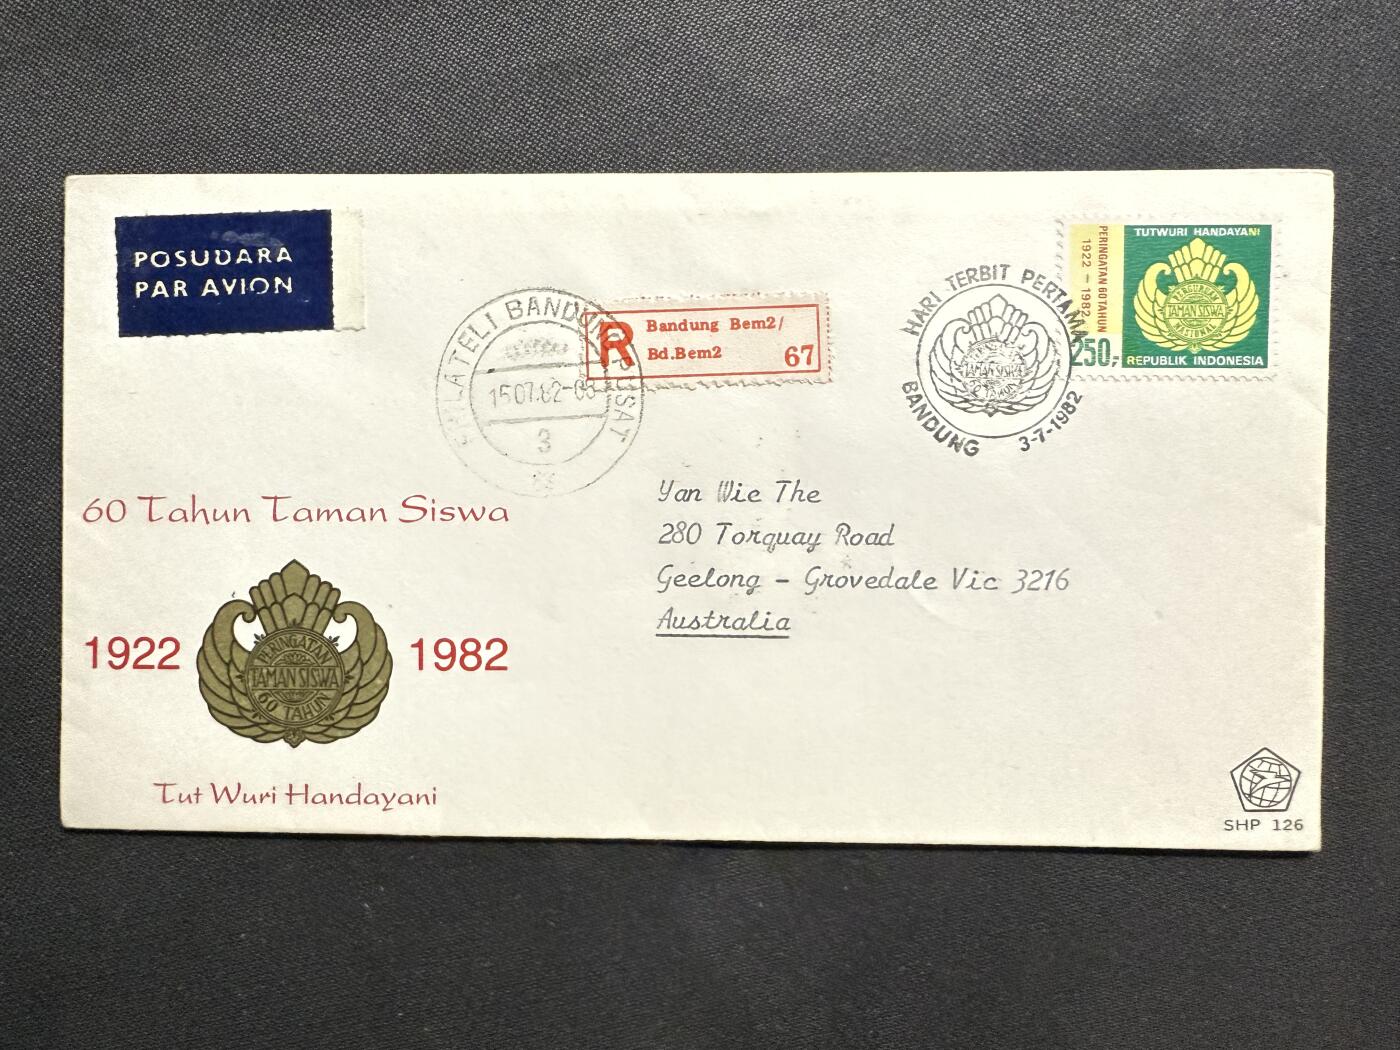 POSUDARA
PAR AVION
FILATELI BANDUNG PUSAT
15.07.82-08
3
R
Bandung Bem2/
Bd.Bem2
67
HARI TERBIT PERTAMA
TAMAN SISWA
60 TAHUN
BANDUNG 3-7-1982
PERINGATAN 60 TAHUN
1922 - 1982
250,-
TUTWURI HANDAYANI
PERGURUAN
TAMAN SISWA
NASIONAL
REPUBLIK INDONESIA
Yan Wie The
280 Torquay Road
Geelong - Grovedale Vic 3216
Australia
60 Tahun Taman Siswa
1922 1982
PERINGATAN
TAMAN SISWA
60 TAHUN
Tut Wuri Handayani
SHP 126